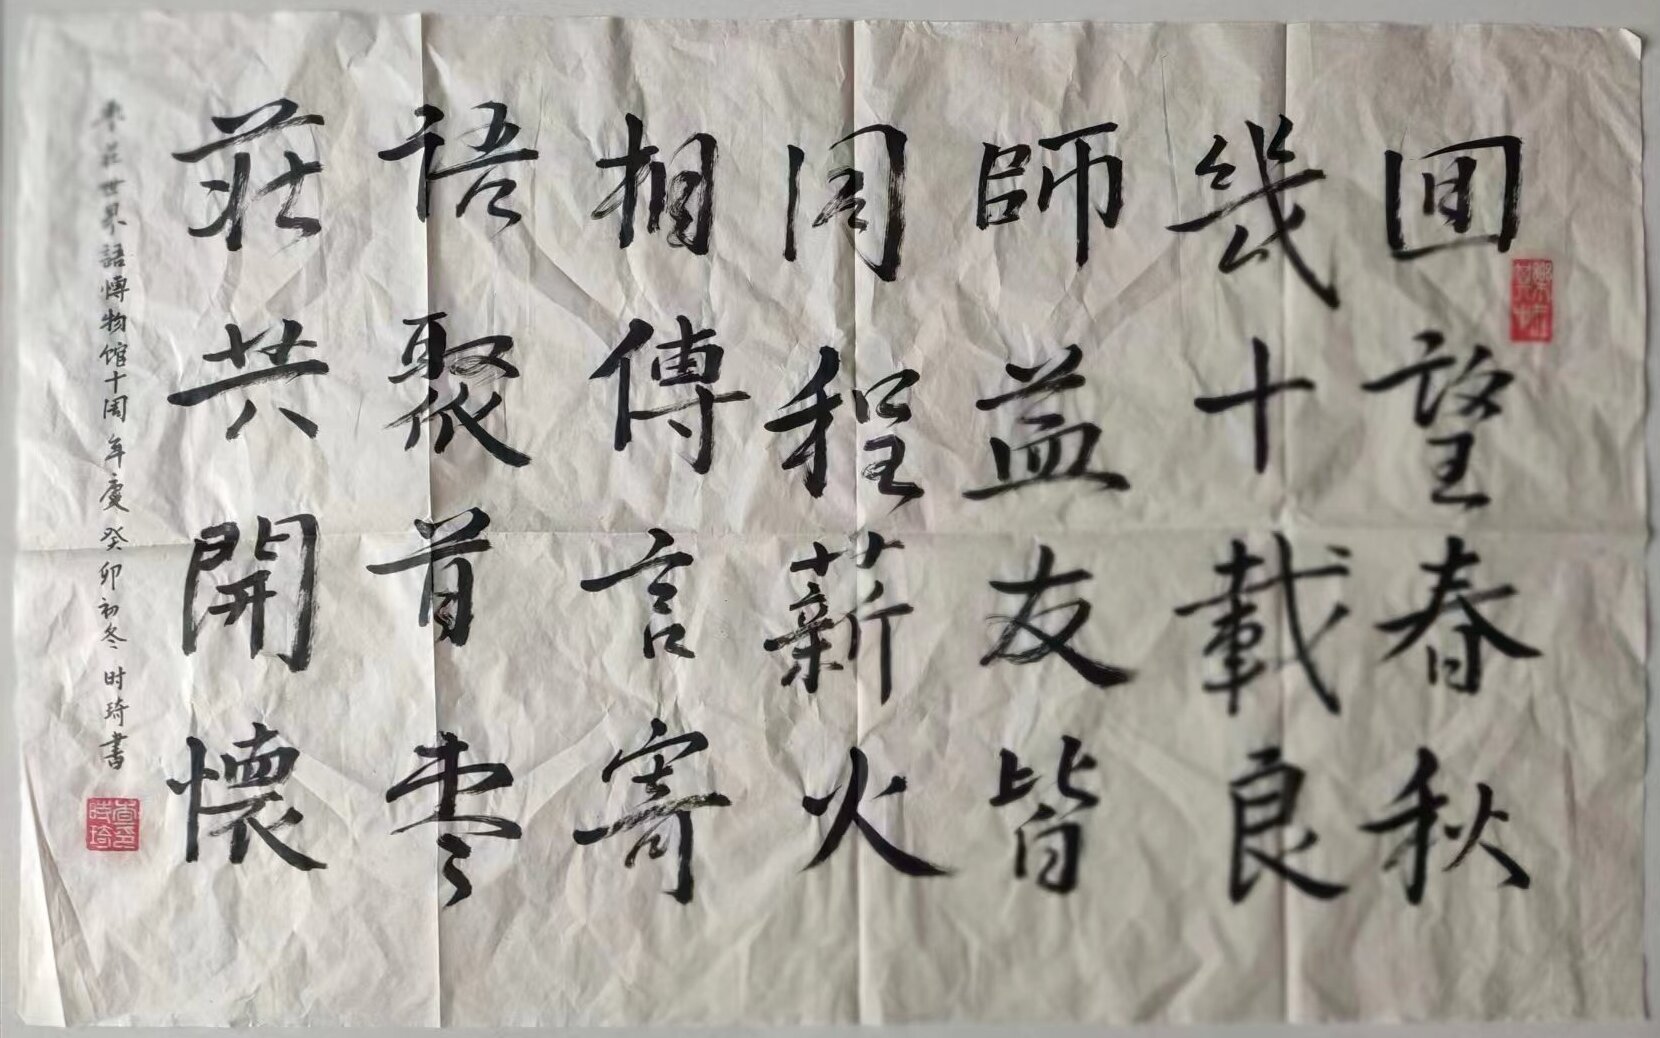 囬望春秋
幾十載良
師益友皆
同程薪火
相傳言寄
语聚首枣
莊共開懷
枣莊世界語博物馆十周年慶 癸卯初冬 时琦書